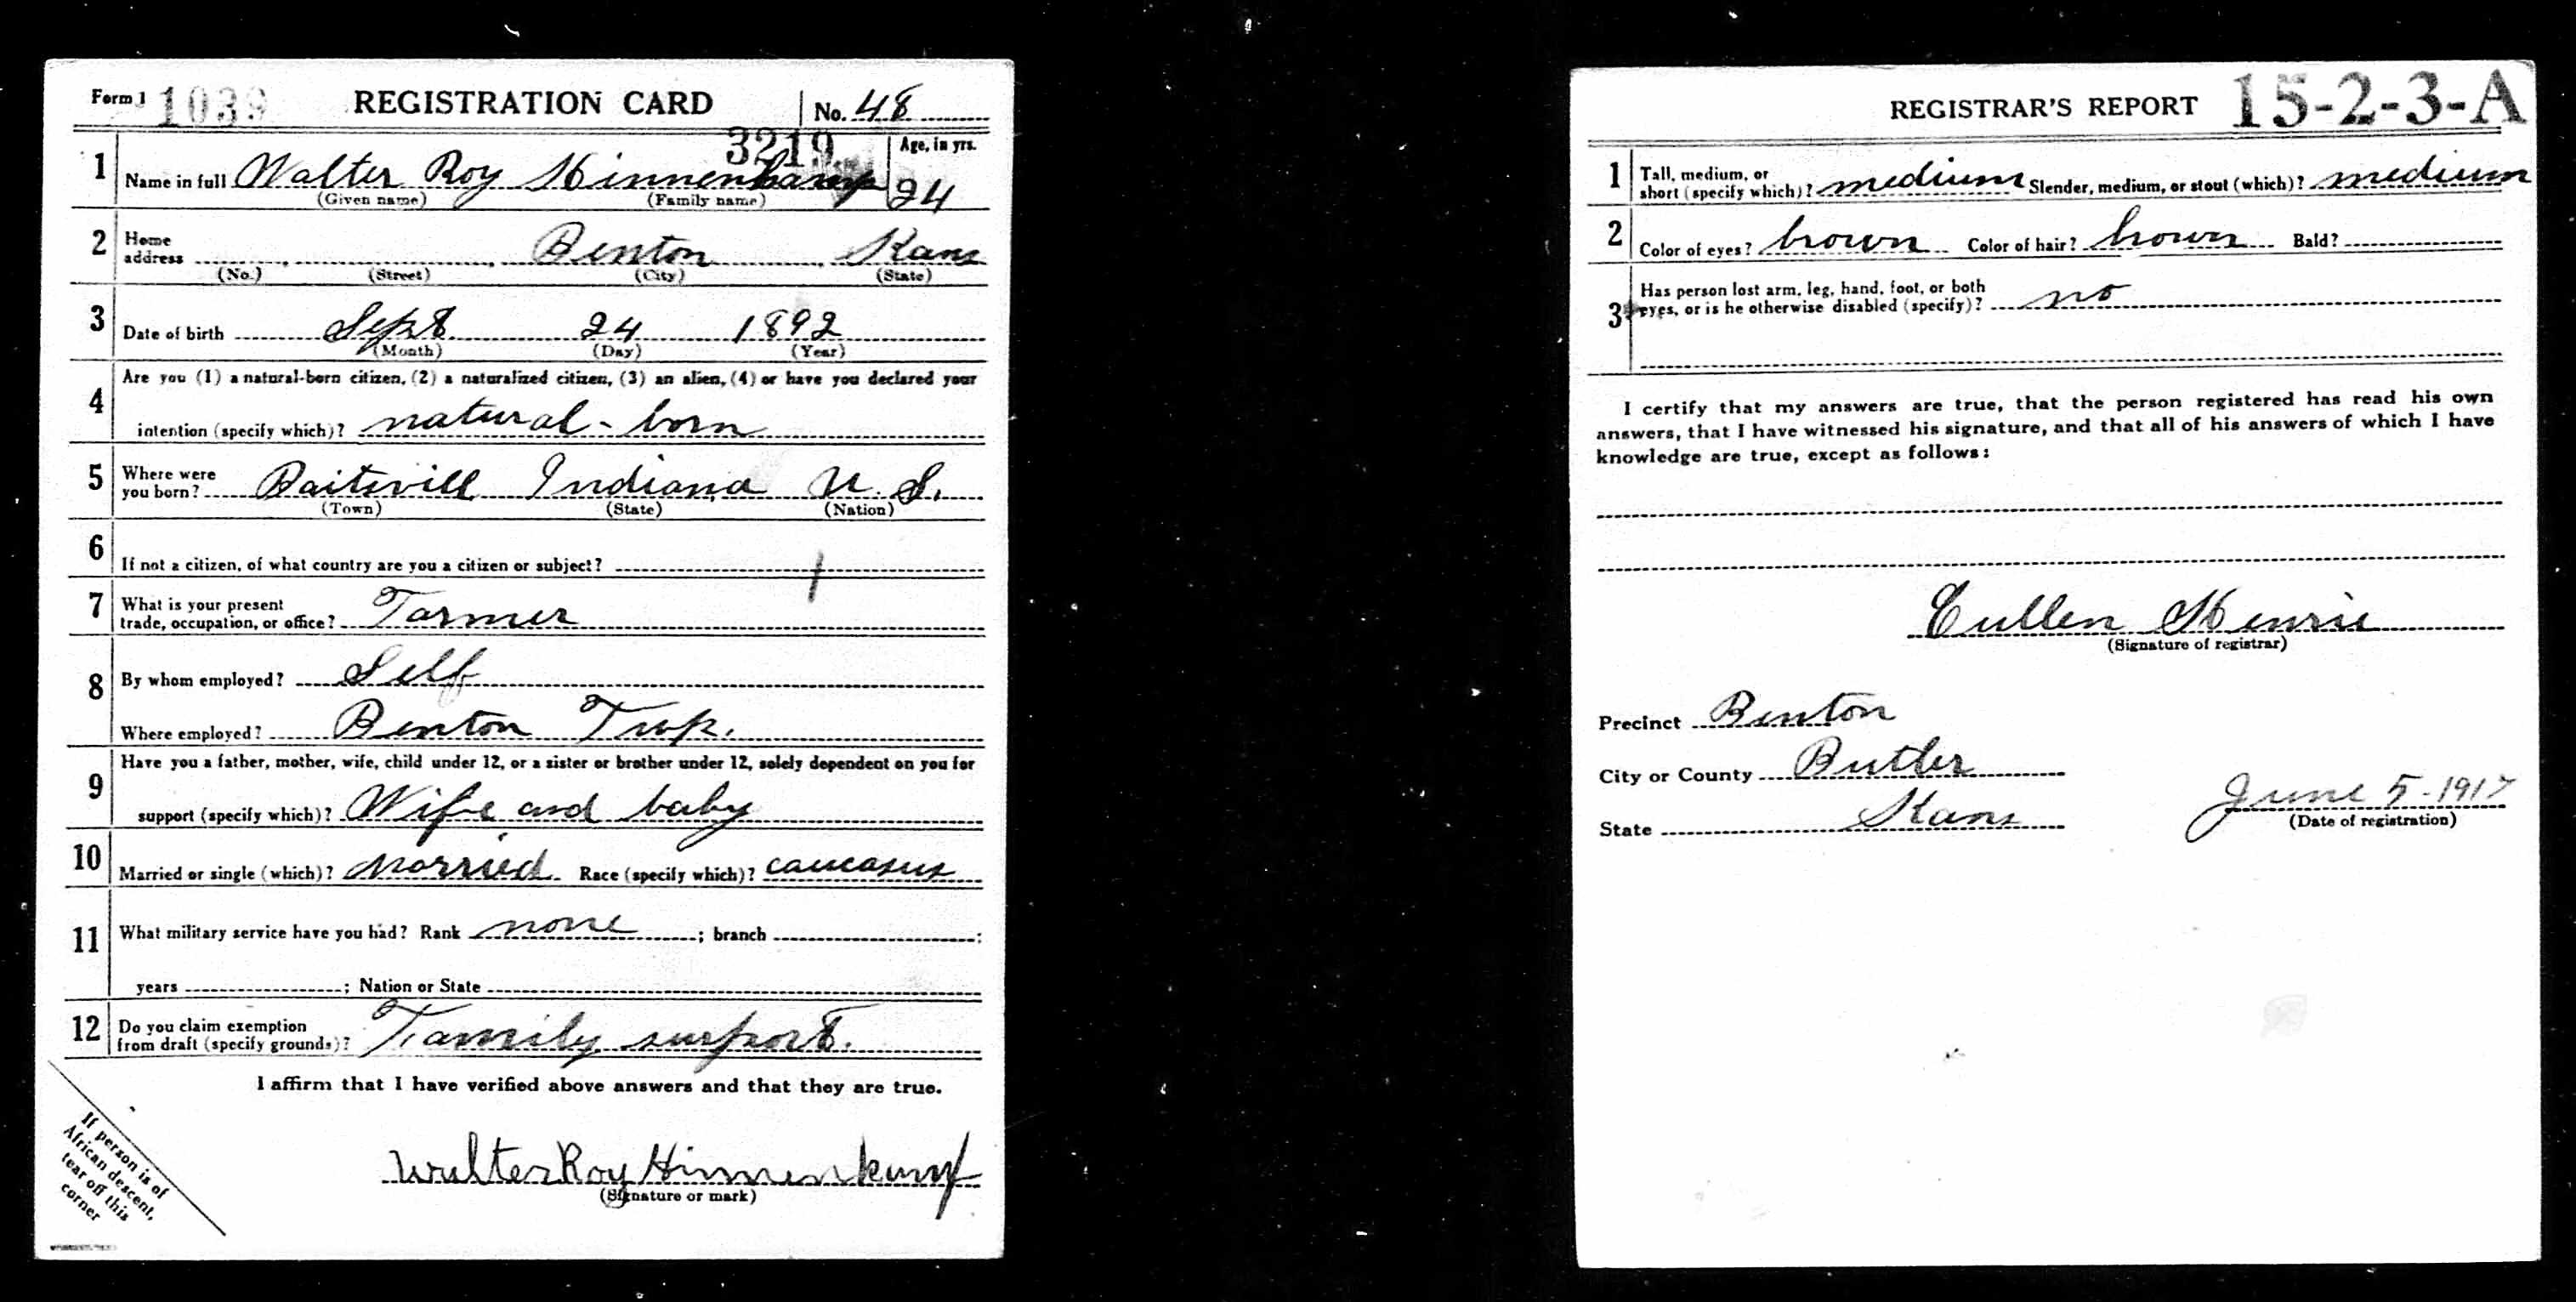 Form 1 1039 REGISTRATION CARD No. 48
3219
1 Name in full Walter Roy Hinnenkamp Age, in yrs. 24
(Given name) (Family name)
2 Home address Benton Kans
(No.) (Street) (City) (State)
3 Date of birth Sept 24 1892
(Month) (Day) (Year)
4 Are you (1) a natural-born citizen, (2) a naturalized citizen, (3) an alien, (4) or have you declared your
intention (specify which)? natural-born
5 Where were you born? Baitsvill Indiana U.S.
(Town) (State) (Nation)
6 If not a citizen, of what country are you a citizen or subject?
7 What is your present
trade, occupation, or office? Farmer
8 By whom employed? Self
Where employed? Benton Twp.
9 Have you a father, mother, wife, child under 12, or a sister or brother under 12, solely dependent on you for
support (specify which)? Wife and baby
10 Married or single (which)? Morried Race (specify which)? caucasus
11 What military service have you had? Rank none ; branch ;
years ; Nation or State
12 Do you claim exemption
from draft (specify grounds)? Family surport.
I affirm that I have verified above answers and that they are true.
Walter Roy Hinnenkamp
(Signature or mark)
If person is of
African descent,
tear off this
corner
REGISTRAR'S REPORT 15-2-3-A
1 Tall, medium, or
short (specify which)? medium Slender, medium, or stout (which)? medium
2 Color of eyes? brown Color of hair? brown Bald?
3 Has person lost arm, leg, hand, foot, or both
eyes, or is he otherwise disabled (specify)? no
I certify that my answers are true, that the person registered has read his own
answers, that I have witnessed his signature, and that all of his answers of which I have
knowledge are true, except as follows:
Cullen Henrie
(Signature of registrar)
Precinct Benton
City or County Butler
State Kans
June 5-1917
(Date of registration)